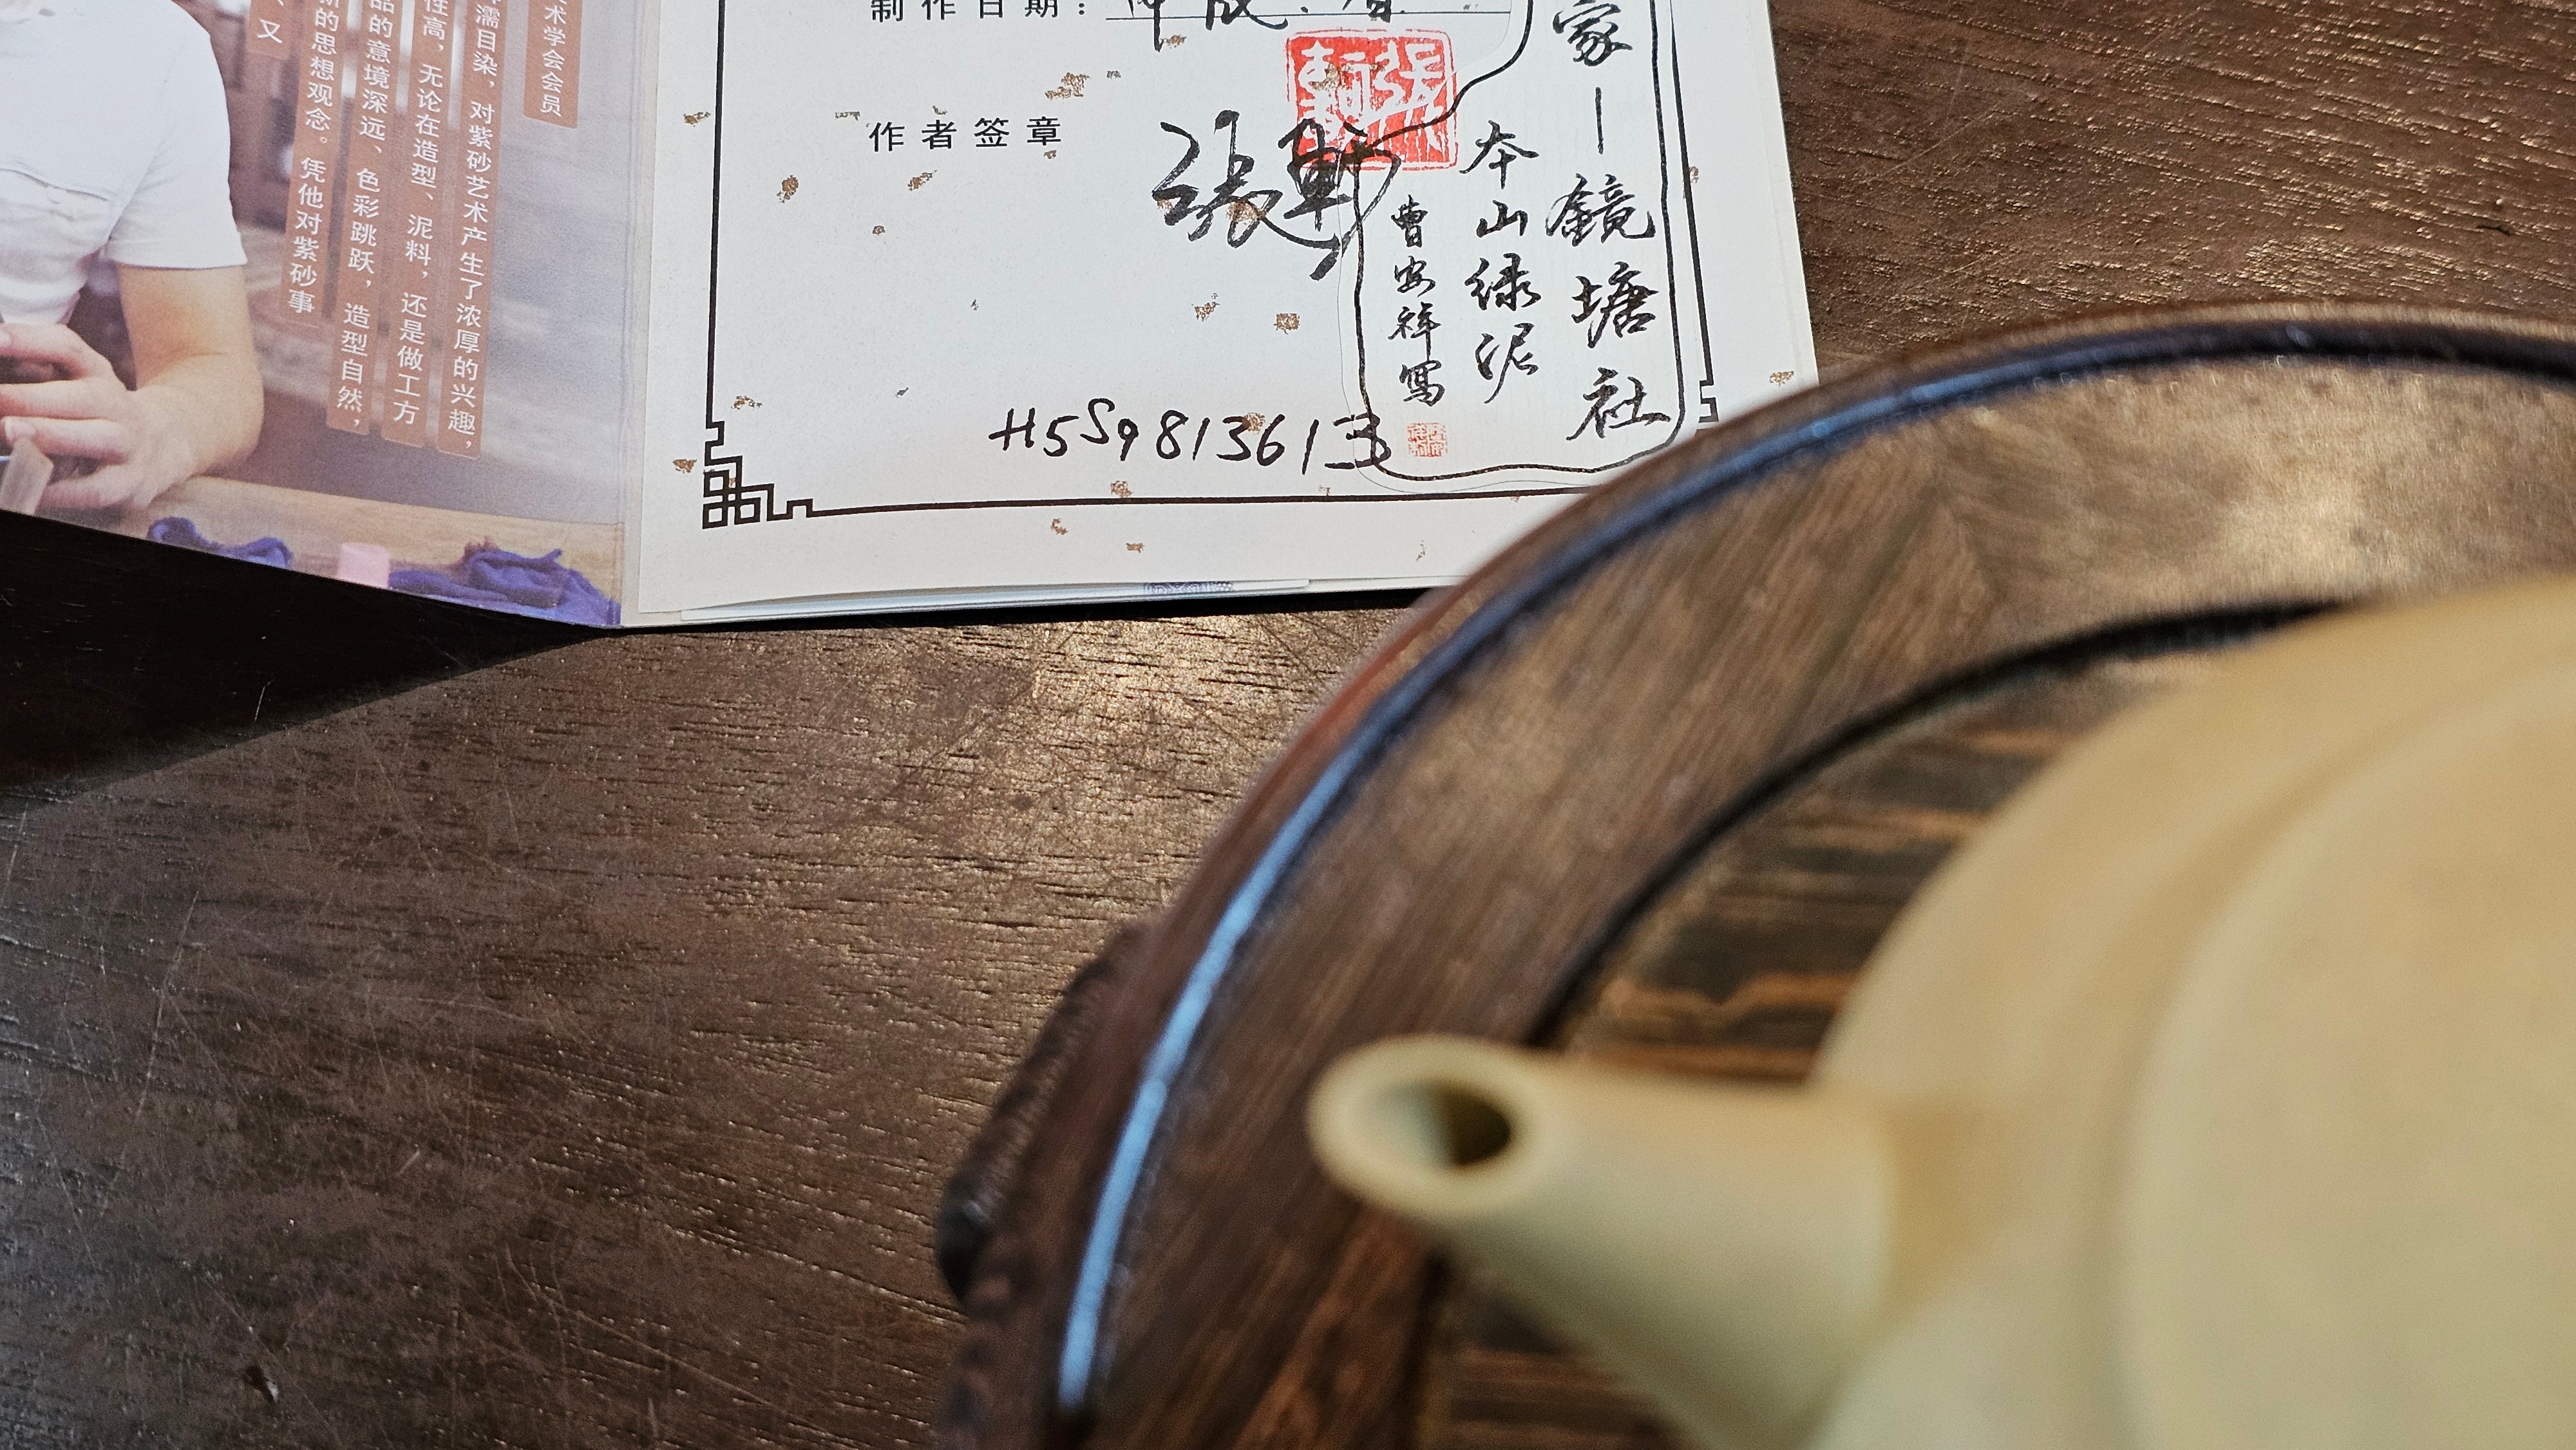 术学会会员
濡目染，对紫砂艺术产生了浓厚的兴趣，
性高，无论在造型、泥料，还是做工方
品的意境深远、色彩跳跃，造型自然，
的思想观念。凭他对紫砂事
、又
制作日期：
作者签章
張軒
張軒
H5S98136133
家一鏡塘社
本山绿泥
曹安祥寫